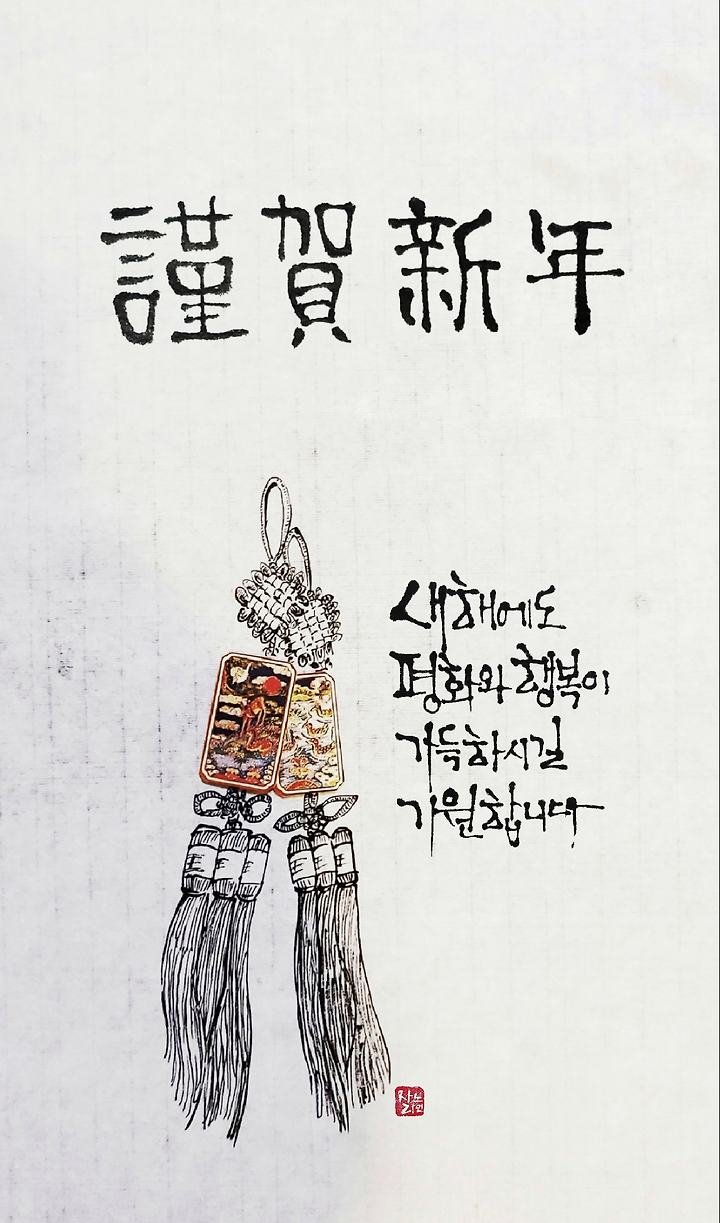 謹賀新年
새해에도
평화와 행복이
가득하시길
가원합니다